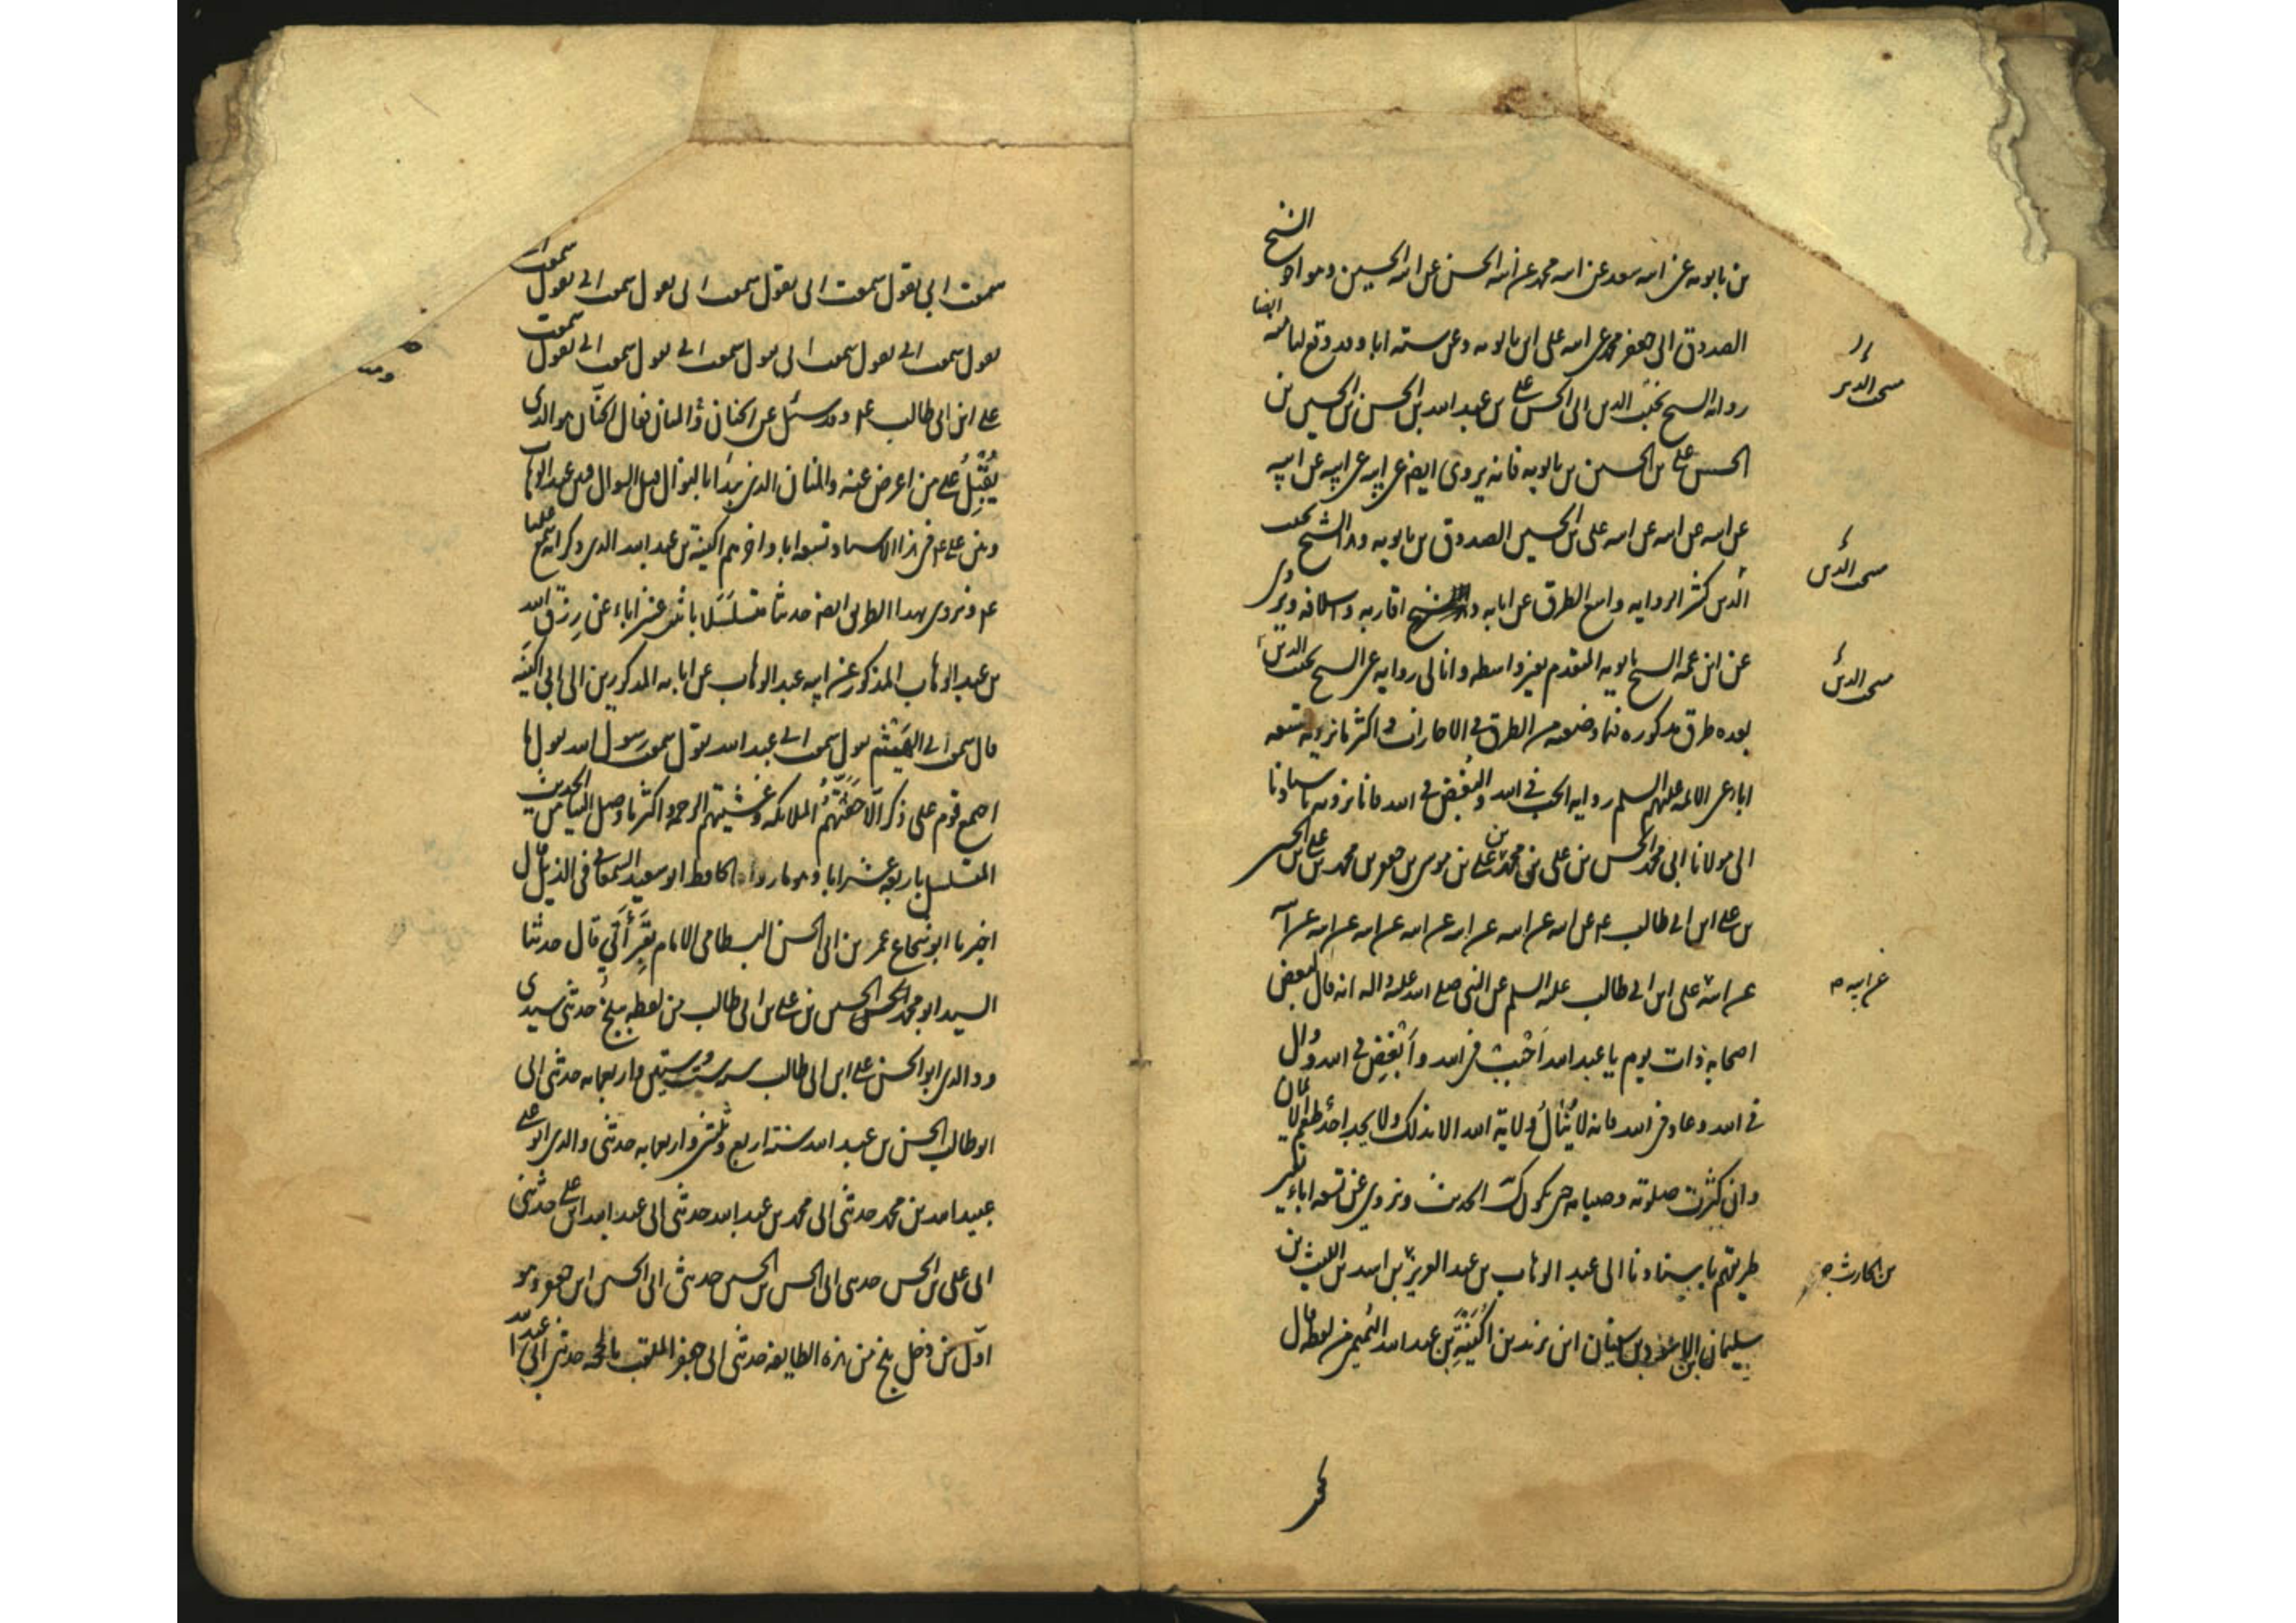 الشيخ
من بابويه عن ابيه سعد عن ابيه محمد عن ابيه الحسن عن ابيه الحسين وهو اخو
الصدوق ابى جعفر محمد عن ابيه على ابن بابويه وعن ستة اباء وقد وقع لنا منه ايضا
رواية الشيخ منتجب الدين ابى الحسن على بن عبيد الله بن الحسن بن الحسين بن
الحسن على بن الحسين بن بابويه فانه يروى ايضا عن ابيه عن ابيه عن ابيه
عن ابيه عن ابيه عن ابيه على بن الحسين الصدوق بن بابويه وهذا الشيخ منتجب
الدين كثير الرواية واسع الطرق عن ابائه واقاربه واسلافه ويروى
عن ابن عمه الشيخ بابويه المتقدم بغير واسطه وانا لى رواية عن الشيخ منتجب الدين
بعده طرق مذكورة فيما وضعته من الطرق فى الاجازات واكثر ما نرويه بتسعة
اباء عن الائمة عليهم السلم رواية الحب فى الله والبغض فى الله فانا نرويه باسنادنا
الى مولانا ابى محمد الحسن بن على بن محمد بن على بن موسى بن جعفر بن محمد بن على بن الحسين
بن على ابن ابى طالب ع عن ابيه عن ابيه عن ابيه عن ابيه عن ابيه عن ابيه عن ابيه
عن ابيه على ابن ابى طالب عليه السلم عن النبى صلى الله عليه واله انه قال لبعض
اصحابه ذات يوم يا عبد الله اَحْبِب فى الله واَبْغِض فى الله ووال
فى الله وعاد فى الله فانه لا يُنَالُ ولاية الله الا بذلك ولا يجد احدٌ طعم الايمان
وان كثرت صلوته وصيامه حتى يكون كذلك الحديث ونروى عن تسعة اباءٍ بغير
طريقهم باسنادنا الى عبد الوهاب بن عبد العزيز بن اسد بن الليث بن
سليمان بن الاسود بن سفيان ابن يزيد بن اُكَيْنَةَ بن عبد الله التميمى من لفظه قال
منتجب الدين
منتجب الدين
منتجب الدين
عن ابيه
بن الحارث
سمعت ابى يقول سمعت ابى يقول سمعت ابى يقول سمعت ابى يقول سمعت ابى
يقول سمعت ابى يقول سمعت ابى يقول سمعت ابى يقول سمعت ابى يقول سمعت
على ابن ابى طالب ع وقد سئل عن الحنان والمنان فقال الحنّان هو الذى
يُقْبِلُ على من اعرض عنه والمنان الذى يبدَأ بالنوال قبل السوال فبين عبد الوهاب
وبين على ع فى هذا الاسناد تسعة اباء واخرهم اكينة بن عبد الله الذى ذكر انه سمع عليا
ع ونروى بهذا الطريق ايضا حديثا متسلسَلا باثنى عشر اباء عن رِزق الله
بن عبد الوهاب المذكور عن ابيه عبد الوهاب عن ابائه المذكورين الى ابى اكينَه
قال سمعت ابى الهَيْثَم يقول سمعت ابى عبد الله يقول سمعت رسول الله يقول ما
اجتمع قوم على ذكر الّا حَفَّتْهُمُ الملائكه وغَشِيَتْهم الرحمة واكثر ما وصل الينا من الحديث
المتسلسل باربعة عشر ابا وهو ما رواه الحافظ ابو سعيد السمعانى فى الذيل قال
اخبرنا ابو شجاع عمر بن ابى الحسن البسطامى الامام بقِرَأَتى قال حدثنا
السيد ابو محمد الحسن بن على بن ابى طالب من لفظه ببلخ حدثنى سيدى
ووالدى ابو الحسن على ابن ابى طالب سنة ست وستين واربعمائه حدثنى ابى
ابو طالب الحسن بن عبيد الله سنة اربع وثلثين واربعمايه حدثنى والدى ابو على
عبيد الله بن محمد حدثنى ابى محمد بن عبيد الله حدثنى ابى عبيد الله ابن على حدثنى
ابى على بن الحسن حدثنى ابى الحسن بن الحسين حدثنى ابى الحسين ابن جعفر وهو
اوّل من دخل بلخ من هذه الطايفة حدثنى ابى جعفر الملقب بالحجة حدثنى ابى عبيد الله